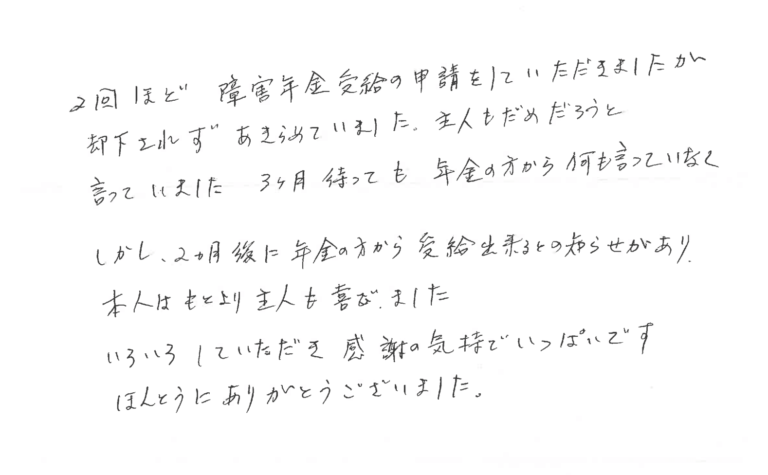 2回ほど 障害年金受給の申請をしていただきましたが
却下されず あきらめていました。主人もだめだろうと
言っていました 3ヶ月待っても 年金の方から何も言っていなく
しかし、2ヵ月後に年金の方から受給出来るとの知らせがあり
本人はもとより主人も喜びました
いろいろしていただき 感謝の気持でいっぱいです
ほんとうにありがとうございました。